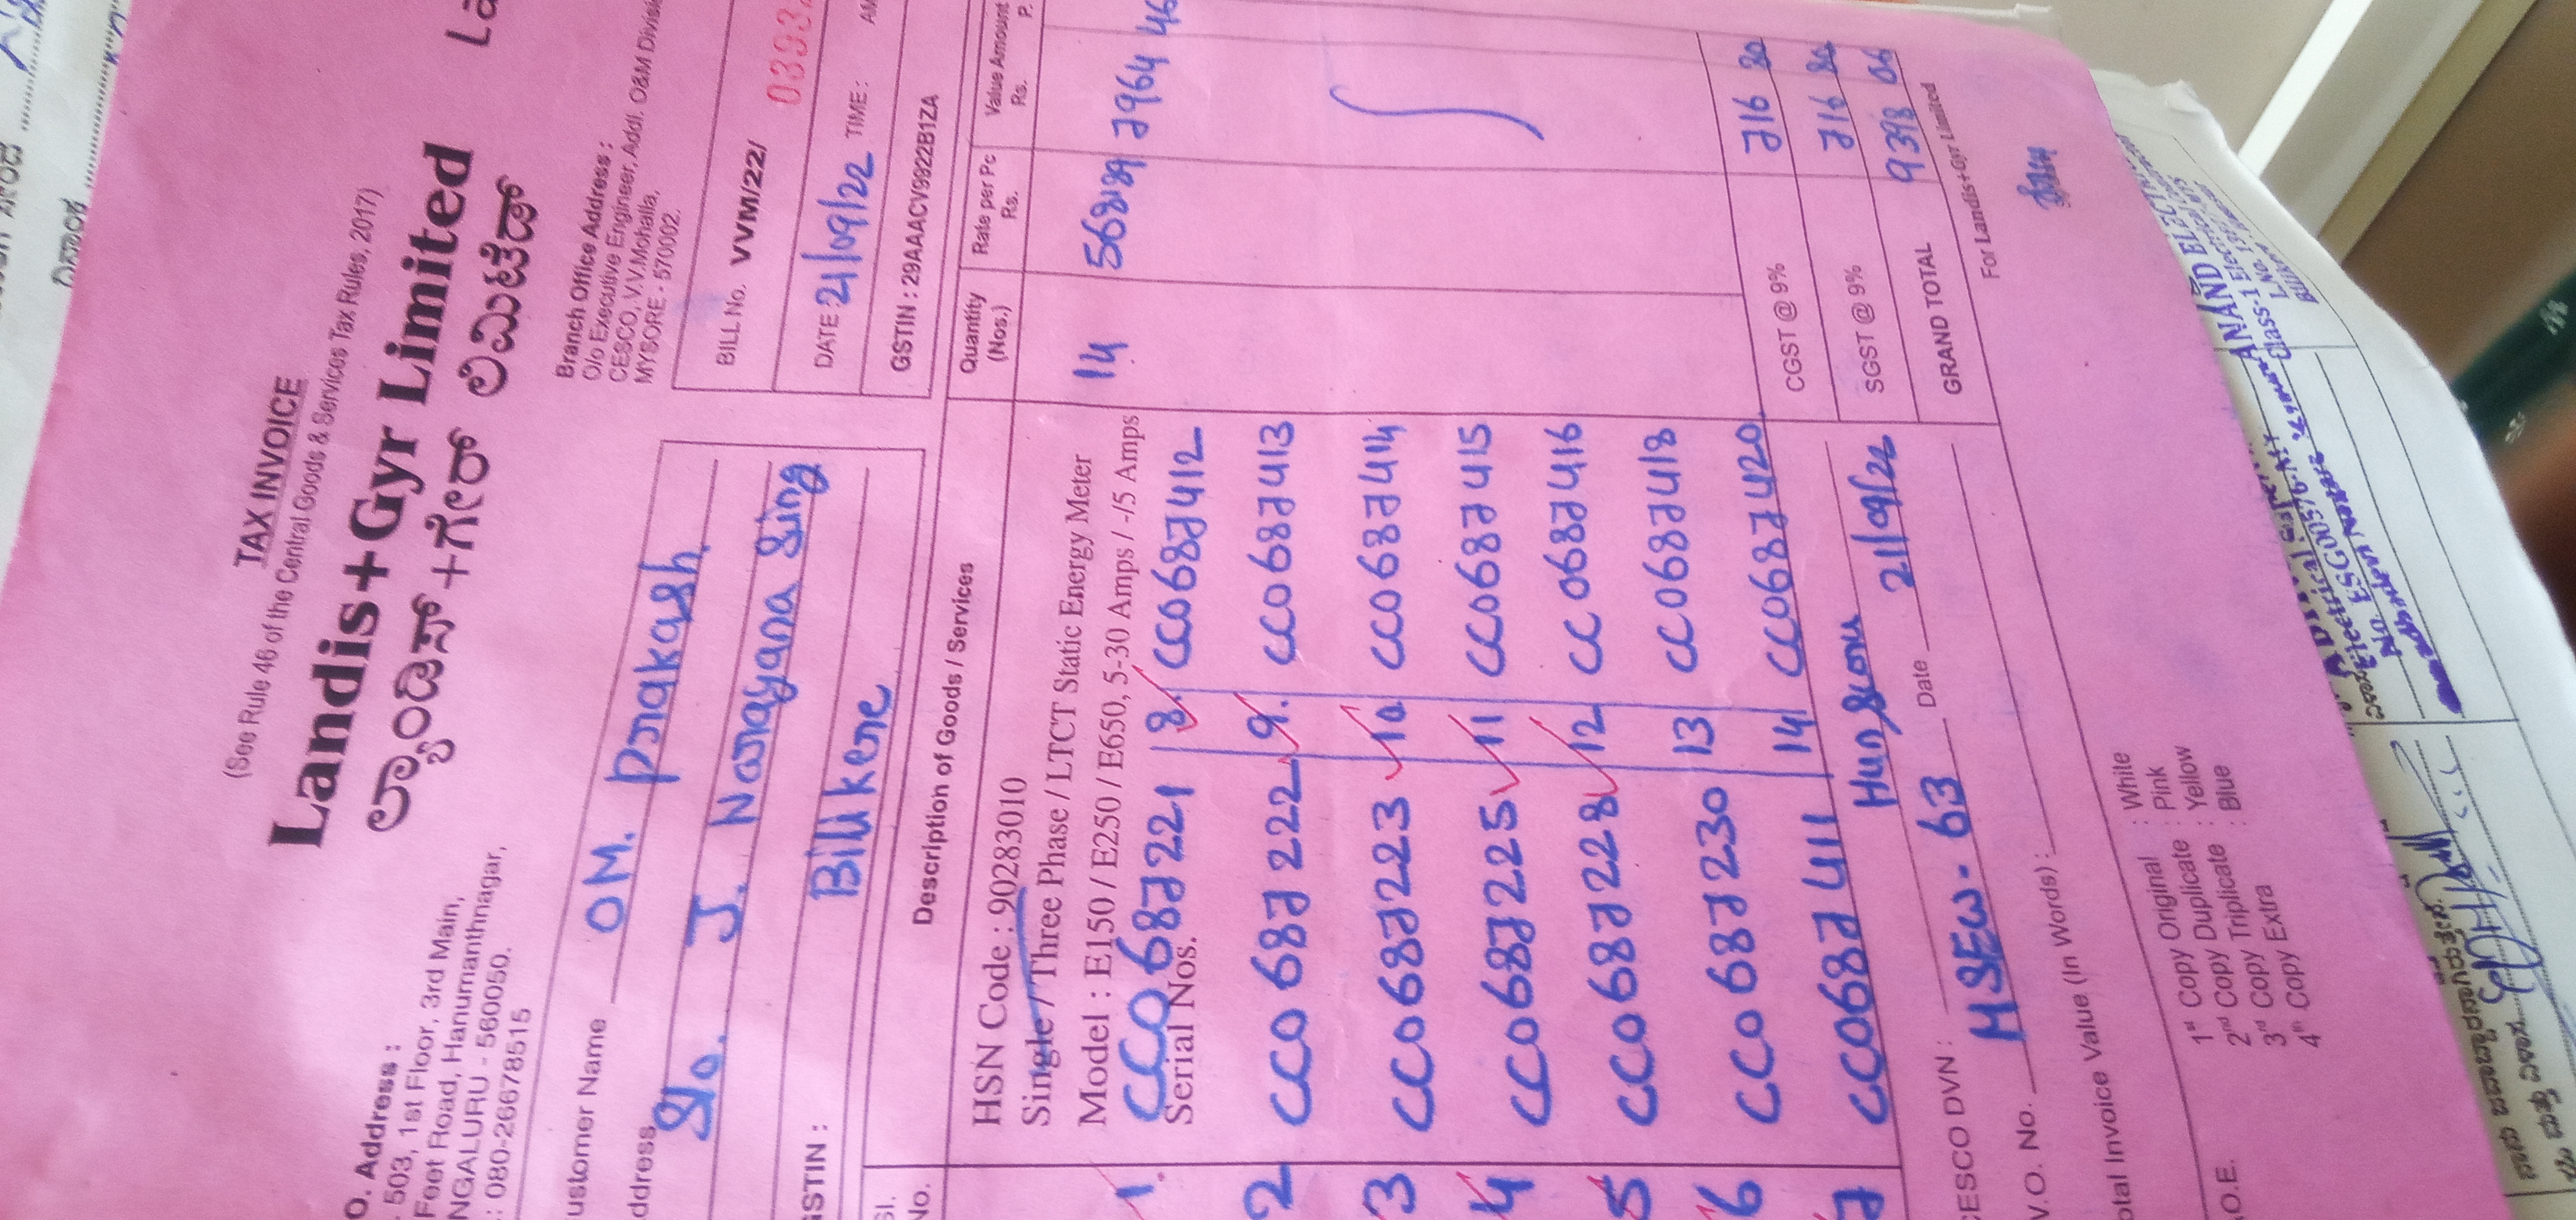 TAX INVOICE
(See Rule 46 of the Central Goods & Services Tax Rules, 2017)
Landis+Gyr Limited
ಲ್ಯಾಂಡಿಸ್+ಗೇರ್ ಲಿಮಿಟೆಡ್
O. Address :
503, 1st Floor, 3rd Main,
Feet Road, Hanumanthnagar,
NGALURU - 560050.
: 080-26678515
Branch Office Address :
O/o Executive Engineer, Addl. O&M Divisi
CESCO, V.V.Mohalla,
MYSORE - 570002.
ustomer Name OM. Prakash
ddress S/o. J. Narayana Sing
Bilikere
GSTIN :
BILL No. VVM/22/ 0393
DATE 21/09/22 TIME : AM
GSTIN : 29AAACV9922B1ZA
Sl. No. Description of Goods / Services Quantity (Nos.) Rate per Pc Rs. Value Amount Rs. P.
HSN Code : 90283010
Single / Three Phase / LTCT Static Energy Meter
Model : E150 / E250 / E650, 5-30 Amps / -/5 Amps 14 7964 46
Serial Nos.
1. CC0687221 8. CC0687412
2 CC0687222 9. CC0687413
3 CC0687223 10 CC0687414
4 CC0687225 11 CC0687415
5 CC0687228 12 CC0687416
6 CC0687230 13 CC0687418
7 CC0687411 14 CC0687420
CGST @ 9% 716 80
SGST @ 9% 716 80
GRAND TOTAL 9398 06
CESCO DVN : Hunsuru Date 21/09/22
V.O. No. HSEW-63
otal Invoice Value (In Words) :
For Landis+Gyr Limited
1st Copy Original : White
2nd Copy Duplicate : Pink
3rd Copy Triplicate : Yellow
4th Copy Extra : Blue
.O.E.